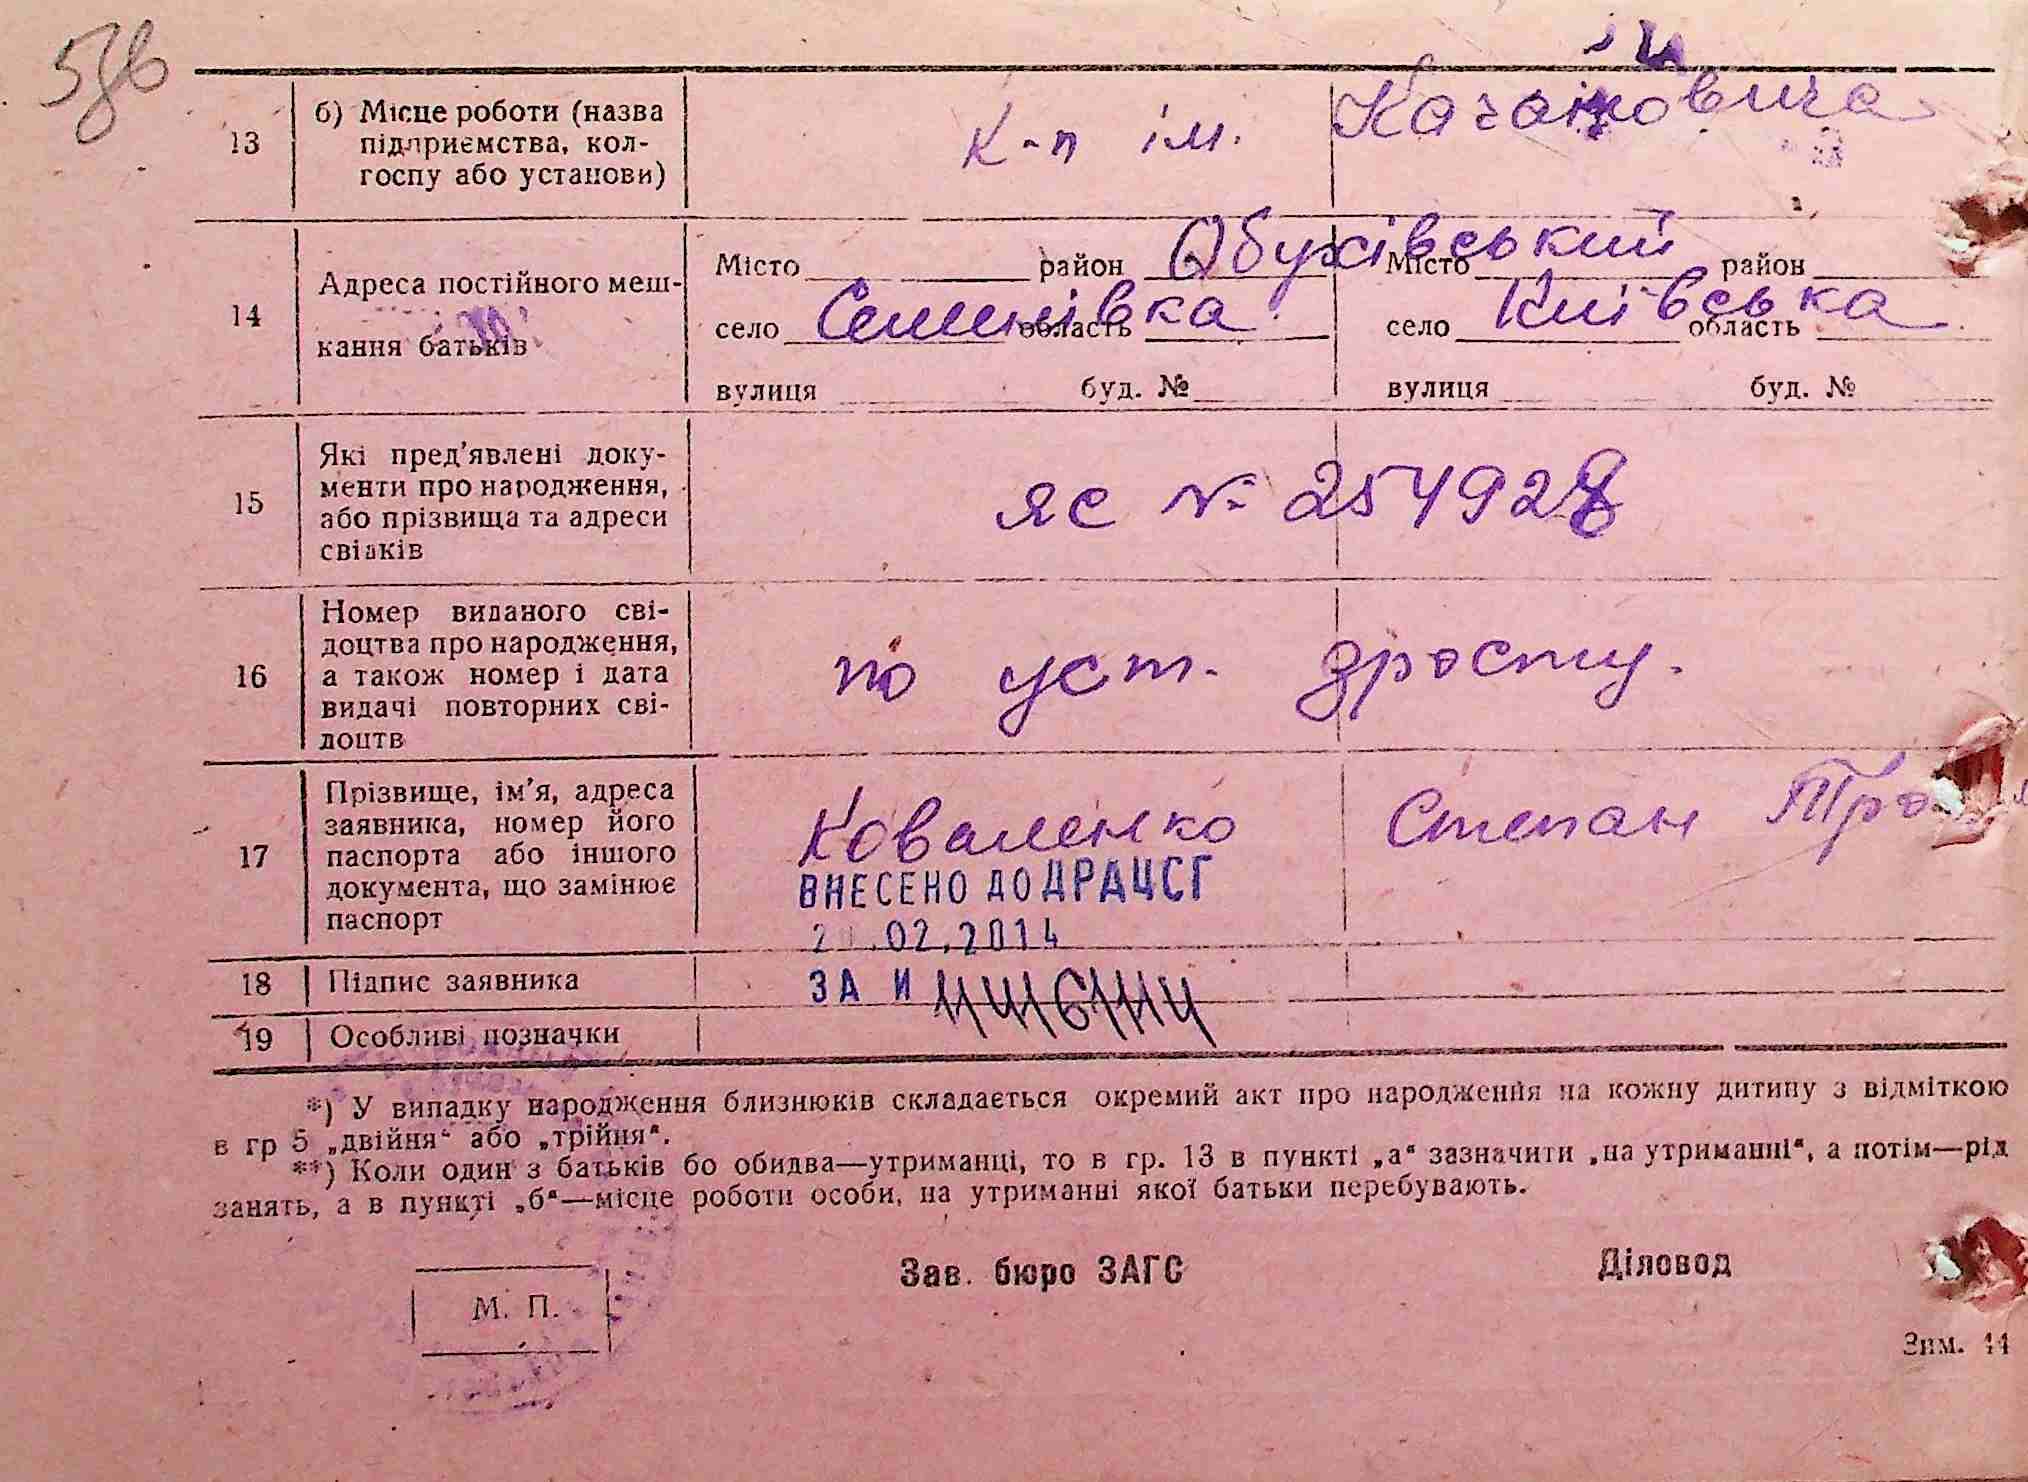 13
б) Місце роботи (назва
підприємства, кол-
госпу або установи)
к-п ім. Кагановича
14
Адреса постійного меш-
кання батьків
Місто район Обухівський Місто район
село Семенівка область село Київська область
вулиця буд. № вулиця буд. №
15
Які пред'явлені доку-
менти про народження,
або прізвища та адреси
свідків
ЯС № 254928
16
Номер виданого сві-
доцтва про народження,
а також номер і дата
видачі повторних сві-
доцтв
по уст. зросту.
17
Прізвище, ім'я, адреса
заявника, номер його
паспорта або іншого
документа, що замінює
паспорт
Коваленко Степан
ВНЕСЕНО ДО ДРАЦСГ
.02.2014
18
Підпис заявника
ЗА И
19
Особливі позначки
*) У випадку народження близнюків складається окремий акт про народження на кожну дитину з відміткою
в гр 5 „двійня“ або „трійня“.
**) Коли один з батьків бо обидва—утриманці, то в гр. 13 в пункті „а“ зазначити „на утриманні“, а потім—рід
занять, а в пункті „б“—місце роботи особи, на утриманні якої батьки перебувають.
Зав. бюро ЗАГС Діловод
М. П.
Зим. 44